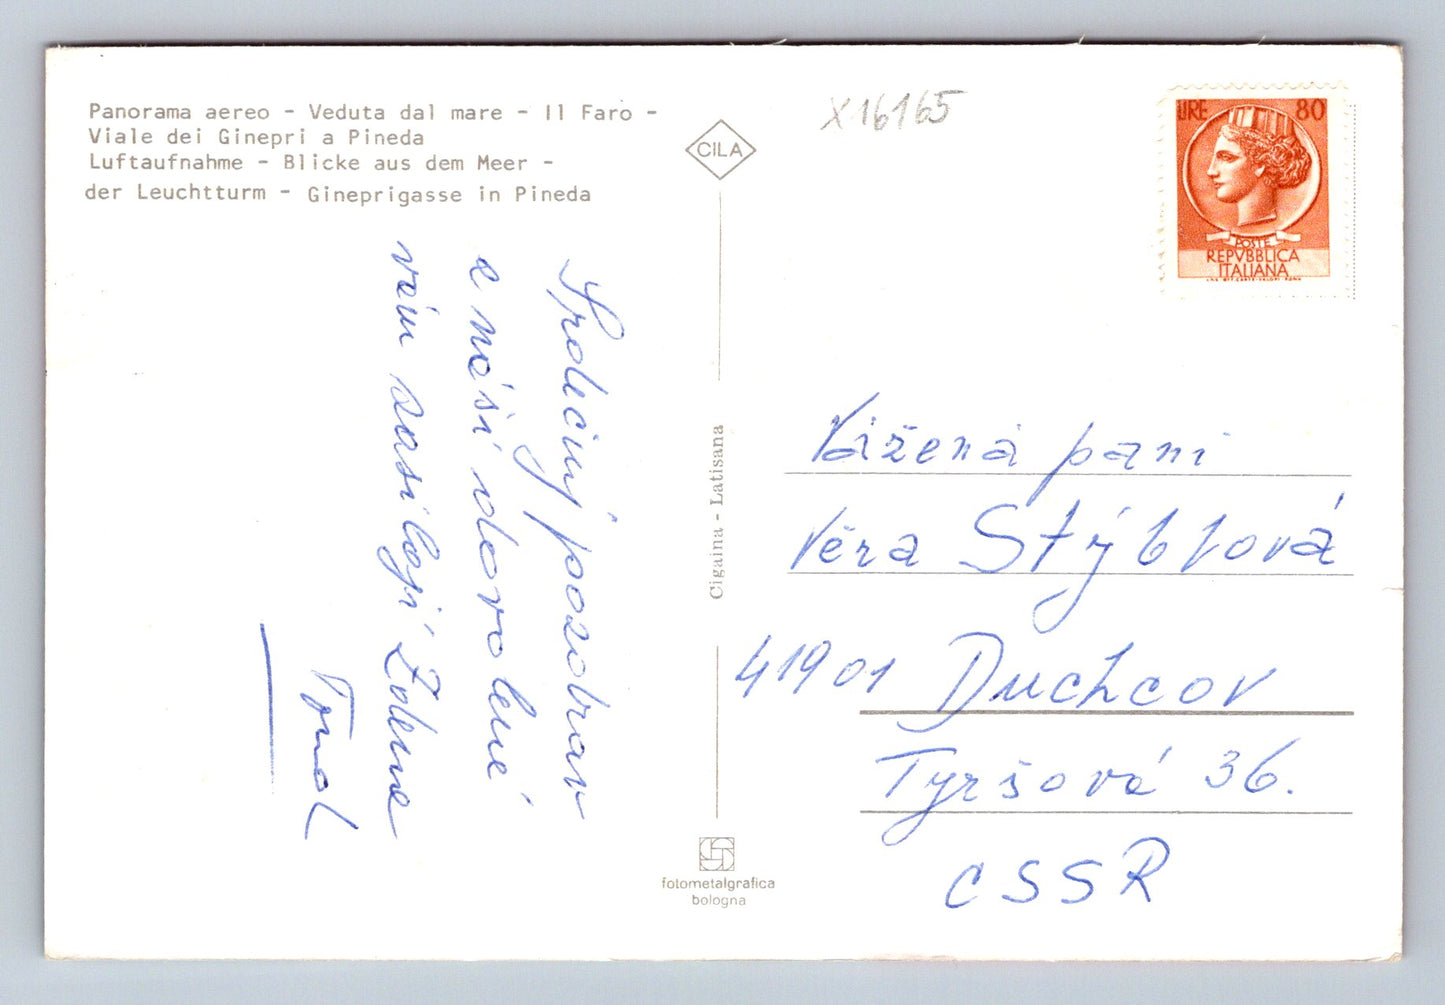 Panorama aereo - Veduta dal mare - Il Faro -
Viale dei Ginepri a Pineda
Luftaufnahme - Blicke aus dem Meer -
der Leuchtturm - Gineprigasse in Pineda
X16165
CILA
LIRE 80
POSTE
REPVBBLICA
ITALIANA
Srdečný pozdrav
z naší dovolené
vám zasílají Zdena
Cigaina - Latisana
Vážená paní
Věra Stýblová
41901 Duchcov
Tyršová 36.
CSSR
fotometalgrafica
bologna